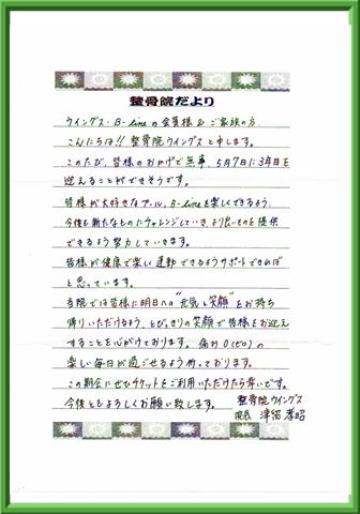 整骨院だより
ウイングス・B-lineの会員様&ご家族の方、
こんにちは!!整骨院ウイングスと申します。
このたび、皆様のおかげで無事、5月7日に3年目を
迎えることができそうです。
皆様が大好きなプール、B-lineを楽しくできるよう、
今後も新たなものにチャレンジしていき、より良いものを提供
できるよう努力していきます。
皆様が健康で楽しい運動できるようサポートできれば
と思っています。
当院では皆様に明日への"元気と笑顔"をお持ち
帰りいただけるよう、とびっきりの笑顔で皆様をお迎え
することを心がけております。痛み0(ゼロ)の
楽しい毎日が過ごせるよう願っております。
この機会にぜひチケットをご利用いただけたら幸いです。
今後ともよろしくお願い致します。
整骨院ウイングス
院長 津留 孝昭